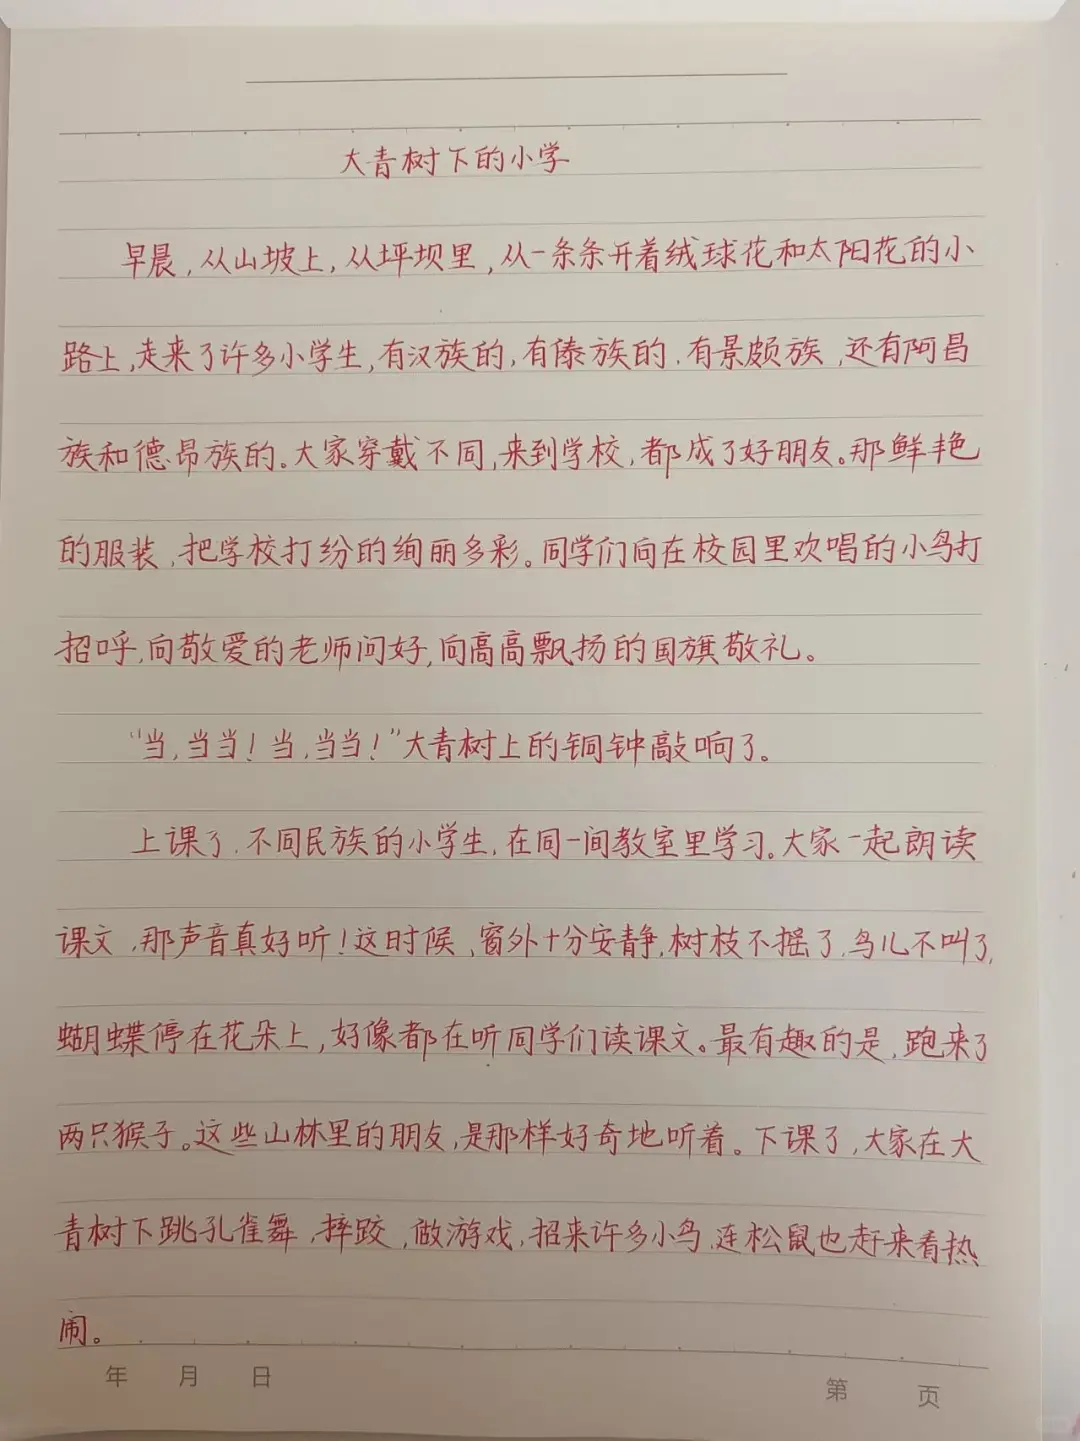 大青树下的小学
早晨,从山坡上,从坪坝里,从一条条开着绒球花和太阳花的小
路上,走来了许多小学生,有汉族的,有傣族的,有景颇族,还有阿昌
族和德昂族的。大家穿戴不同,来到学校,都成了好朋友。那鲜艳
的服装,把学校打纷的绚丽多彩。同学们向在校园里欢唱的小鸟打
招呼,向敬爱的老师问好,向高高飘扬的国旗敬礼。
“当,当当!当,当当!”大青树上的铜钟敲响了。
上课了,不同民族的小学生,在同一间教室里学习。大家一起朗读
课文,那声音真好听!这时候,窗外十分安静,树枝不摇了,鸟儿不叫了,
蝴蝶停在花朵上,好像都在听同学们读课文。最有趣的是,跑来了
两只猴子。这些山林里的朋友,是那样好奇地听着。下课了,大家在大
青树下跳孔雀舞,摔跤,做游戏,招来许多小鸟,连松鼠也赶来看热
闹。
年 月 日
第 页